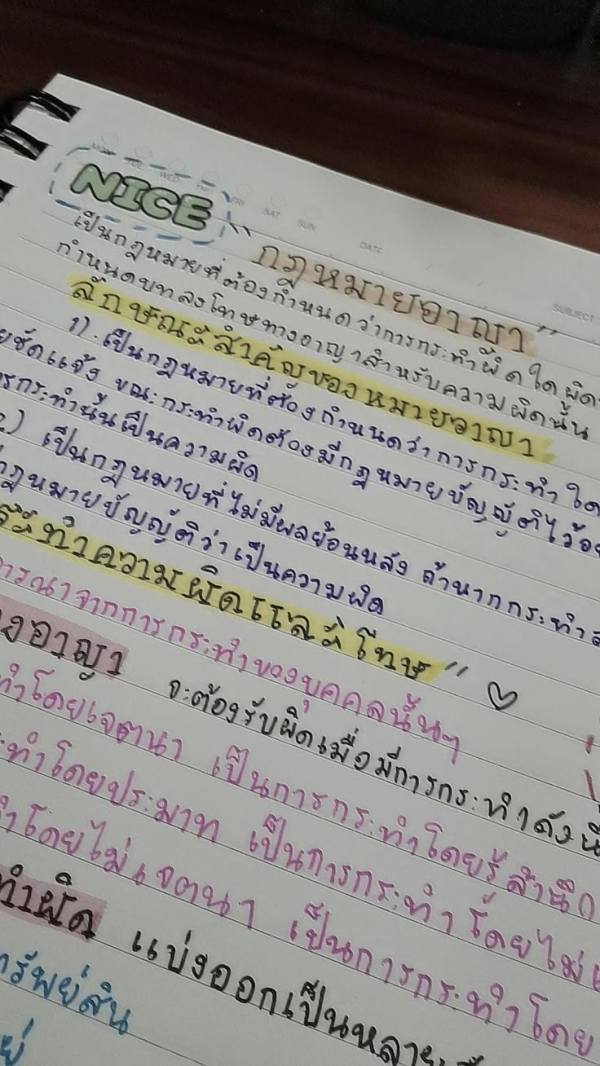 NICE
FRI SAT SUN DATE
SUBJECT
"กฎหมายอาญา"
เป็นกฎหมายที่ต้องกำหนดว่าการกระทำผิดใดผิด
กำหนดบทลงโทษทางอาญาสำหรับความผิดนั้น
ลักษณะสำคัญของหมายอาญา
1) เป็นกฎหมายที่ต้องกำหนดว่าการกระทำใด
ชัดแจ้ง ขณะกระทำผิดต้องมีกฎหมายบัญญัติไว้
การกระทำนั้นเป็นความผิด
2) เป็นกฎหมายที่ไม่มีผลย้อนหลัง ถ้าหากกระทำ
กฎหมายบัญญัติว่าเป็นความผิด
กระทำความผิดและโทษ" ♡
จากการกระทำของบุคคลนั้นๆ
อาญา จะต้องรับผิดเมื่อมีการกระทำดังนี้
ทำโดยเจตนา เป็นการกระทำโดยรู้สำนึก
ทำโดยประมาท เป็นการกระทำโดยไม่
ทำโดยไม่เจตนา เป็นการกระทำโดย
ทำผิด แบ่งออกเป็นหลาย
ทรัพย์สิน